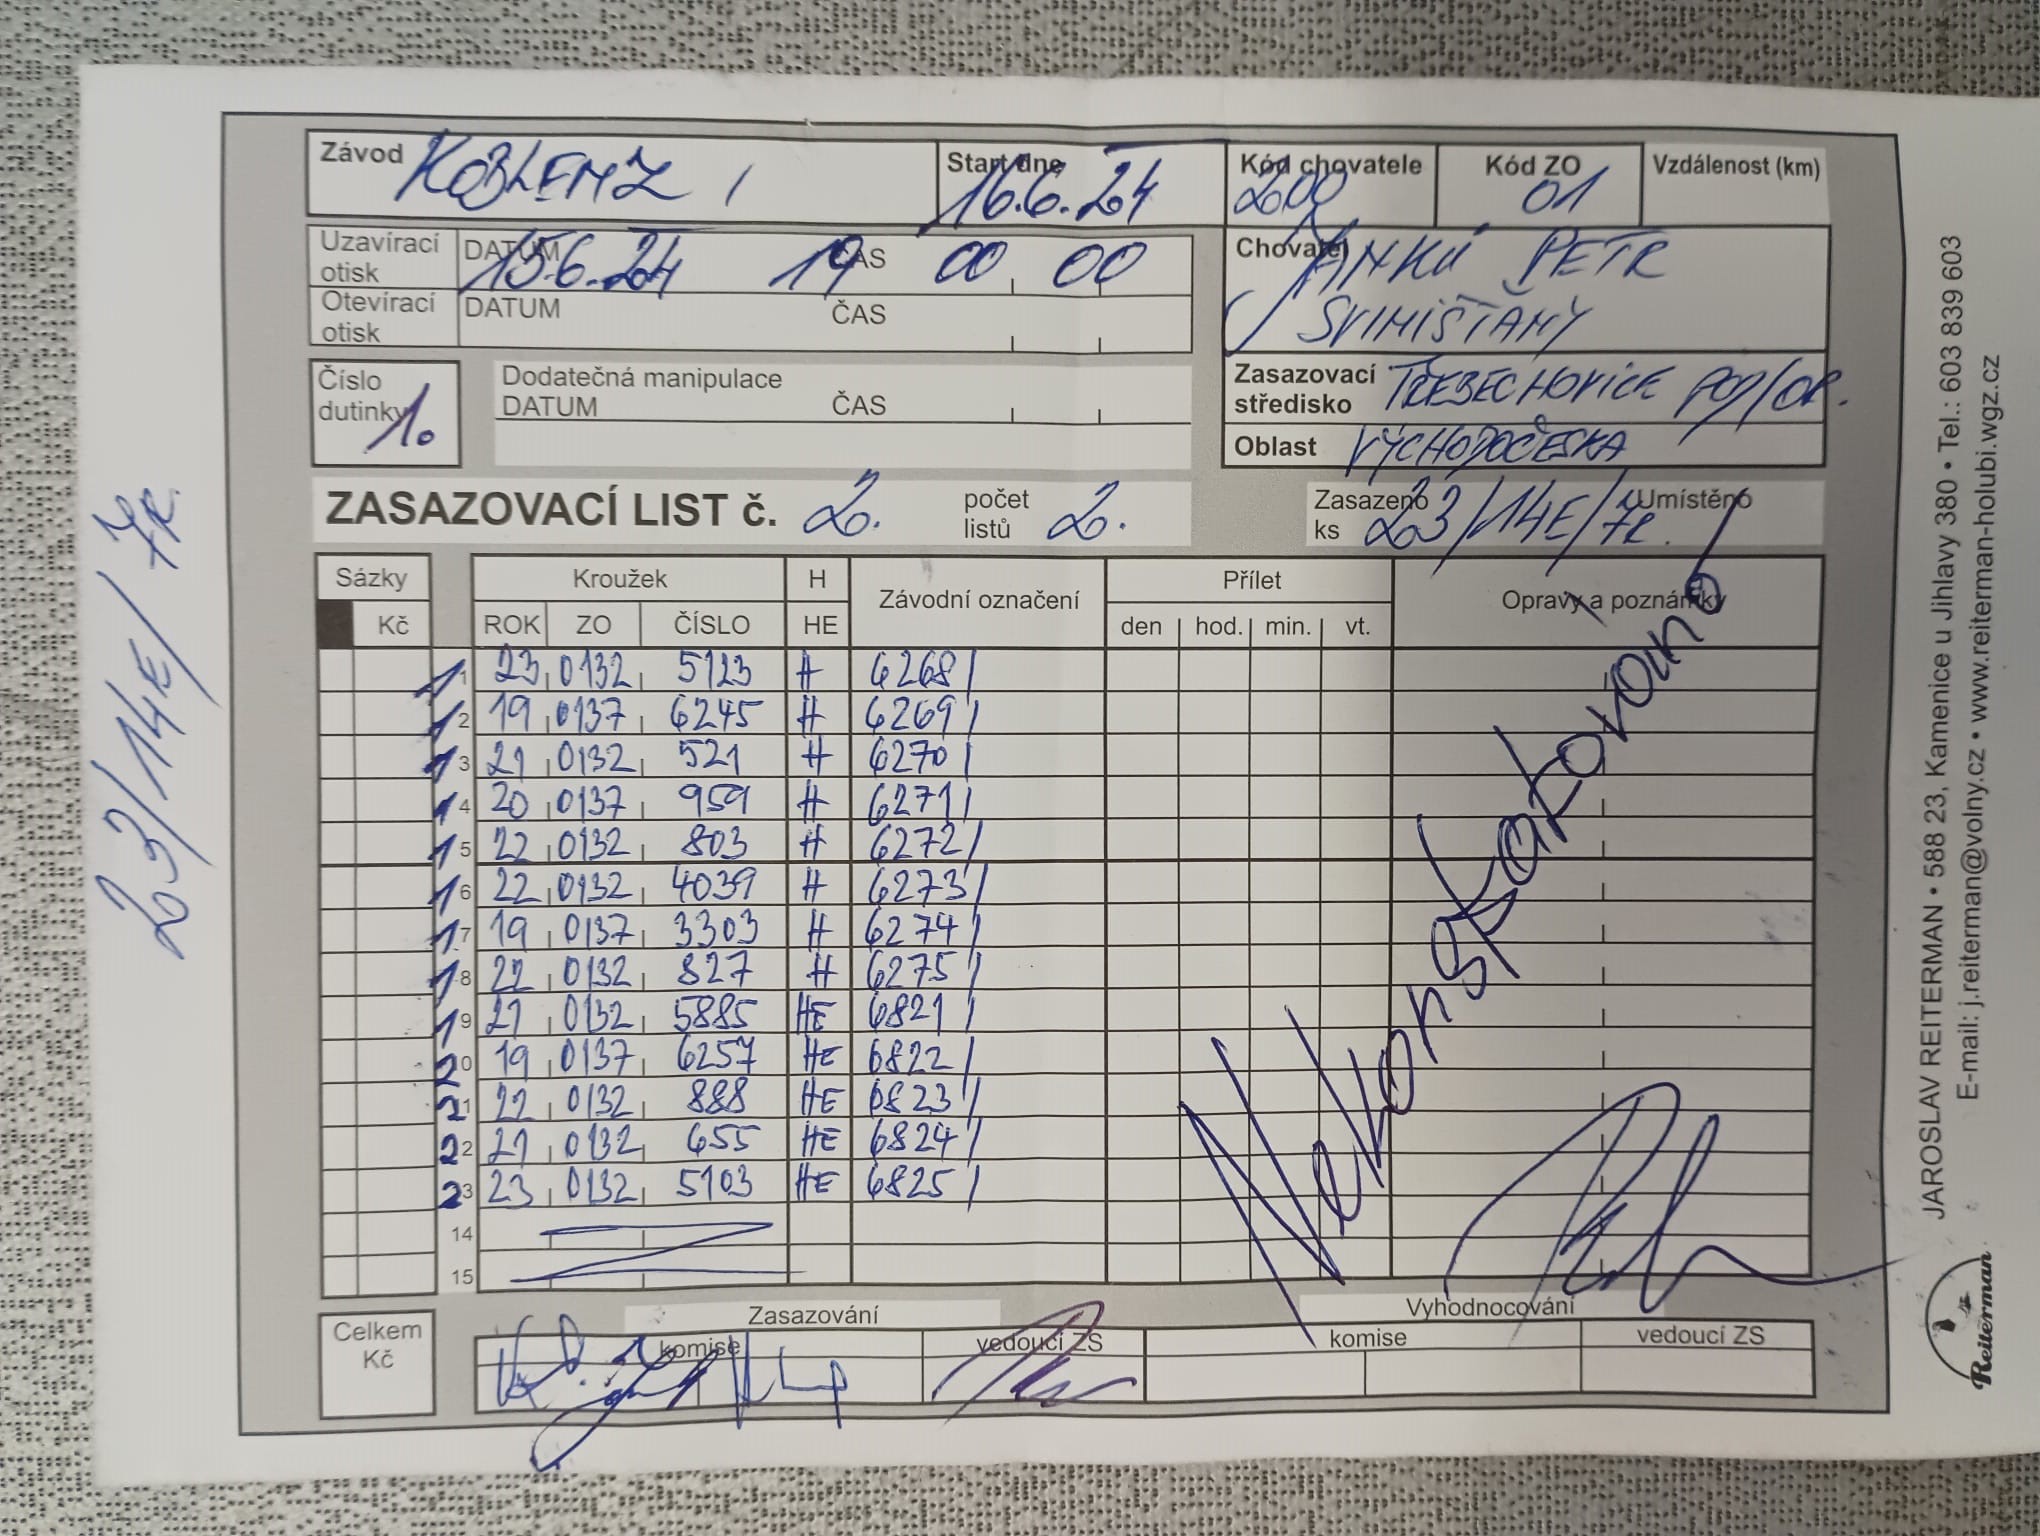 Závod KOBLENZ 1 Start dne 16.6.24 Kód chovatele 200 Kód ZO 01 Vzdálenost (km)
Uzavírací otisk DATUM 15.6.24 ČAS 19 00 00
Otevírací otisk DATUM ČAS
Chovatel JANKŮ PETR
SVINIŠŤANY
Číslo dutinky 1.
Dodatečná manipulace
DATUM ČAS
Zasazovací středisko TŘEBECHOVICE POD/OR.
Oblast VÝCHODOČESKÁ
ZASAZOVACÍ LIST č. 2. počet listů 2. Zasazeno ks 23/14E/7R. Umístěno
Sázky Kroužek H Závodní označení Přílet Opravy a poznámky
Kč ROK ZO ČÍSLO HE den hod. min. vt.
11 23 0132 5123 H 6268/
12 19 0137 6245 H 6269/
13 21 0132 521 H 6270/
14 20 0137 959 H 6271/
15 22 0132 803 H 6272/
16 22 0132 4039 H 6273/
17 19 0137 3303 H 6274/
18 22 0132 827 H 6275/
19 21 0132 5885 HE 6821/
20 19 0137 6257 HE 6822/
21 22 0132 888 HE 6823/
22 21 0132 655 HE 6824/
23 23 0132 5103 HE 6825/
14
15
Nekonstatováno
Celkem Kč
Zasazování Vyhodnocování
komise vedoucí ZS komise vedoucí ZS
23/14E/7R.
JAROSLAV REITERMAN • 588 23, Kamenice u Jihlavy 380 • Tel.: 603 839 603
E-mail: j.reiterman@volny.cz • www.reiterman-holubi.wgz.cz
Reiterman